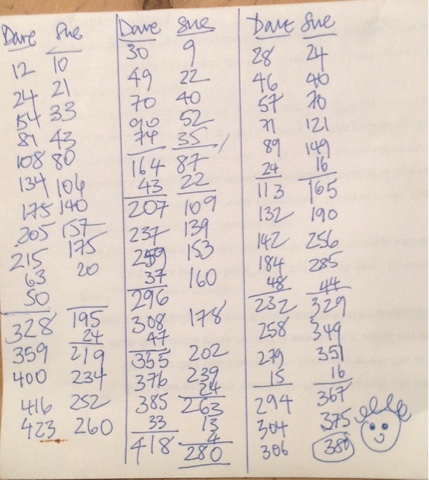 Dave Sue
12 10
24 21
54 33
81 43
108 80
134 106
175 140
205 157
215 175
63 20
50
328 195
24
359 219
400 234
416 252
423 260
Dave Sue
30 9
49 22
70 40
90 52
74 35
164 87
43 22
207 109
237 139
259 153
37 160
296
308 178
47
355 202
376 239
24
385 263
33 13
4
418 280
Dave Sue
28 24
46 40
57 70
71 121
89 149
24 16
113 165
132 190
142 256
184 285
48 44
232 329
258 349
279 351
15 16
294 367
304 375
306 380